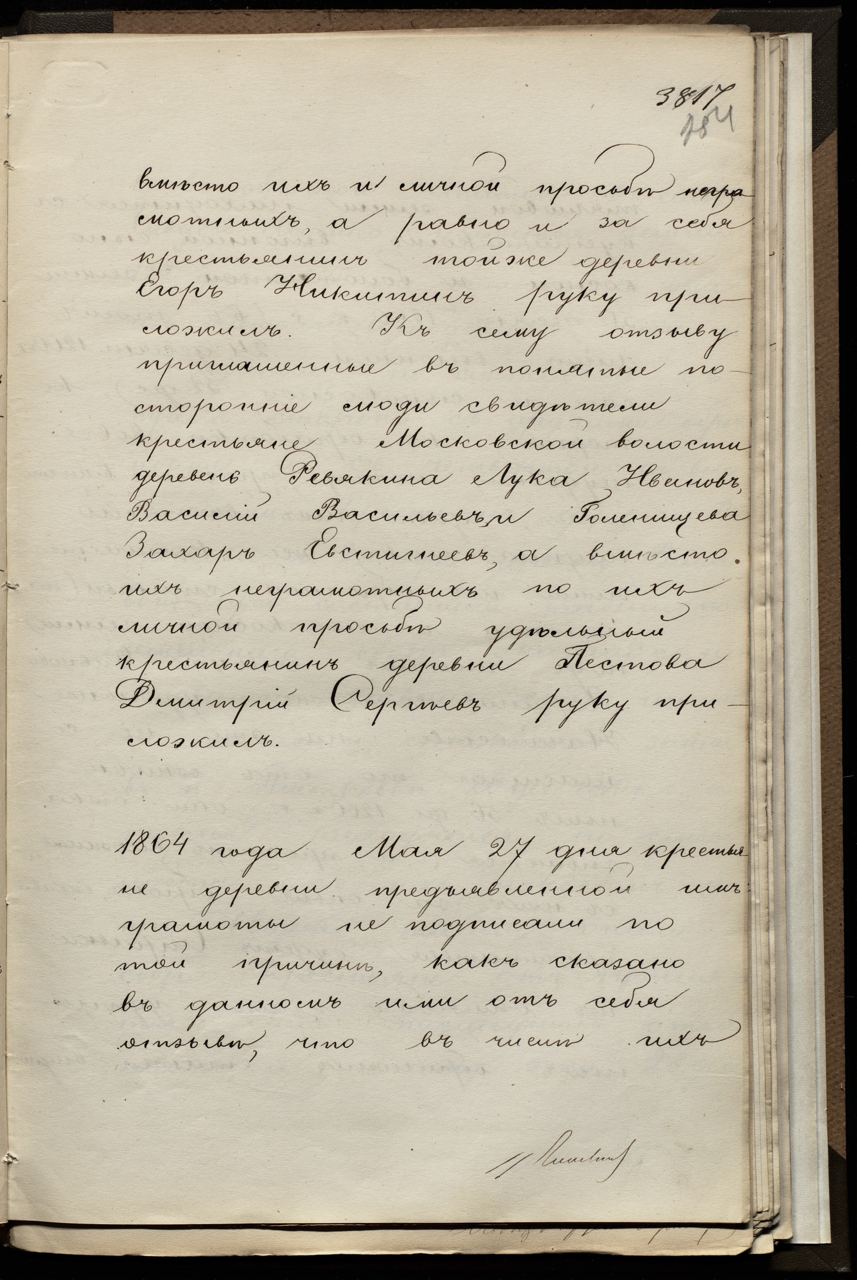 3817
184
вмѣсто ихъ и личной просьбѣ негра
мотныхъ, а равно и за себя
крестьянинъ тойже деревни
Егоръ Никитинъ руку при-
ложилъ. Къ сему отзыву
приглашенные въ понятые по-
сторонніе люди свидѣтели
крестьяне Московской волости
деревень Ревякина Лука Ивановъ,
Василій Васильевъ, и Голенищева
Захаръ Евстигнеевъ, а вмѣсто
ихъ неграмотныхъ по ихъ
личной просьбѣ удѣльный
крестьянинъ деревни Пестова
Дмитрій Сергѣевъ руку при-
ложилъ.
1864 года Мая 27 дня крестья
не деревни предъявленной имъ
грамоты не подписали по
той причинѣ, какъ сказано
въ данномъ ими отъ себя
отзывѣ, что въ числѣ ихъ